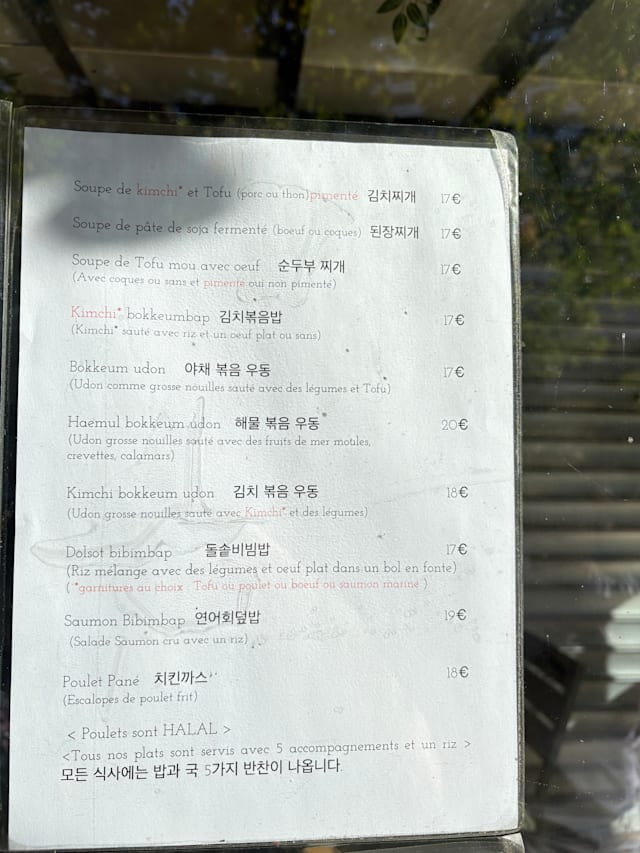 Soupe de kimchi* et Tofu (porc ou thon)pimenté 김치찌개 17€
Soupe de pâte de soja fermenté (boeuf ou coques) 된장찌개 17€
Soupe de Tofu mou avec oeuf 순두부 찌개 17€
(Avec coques ou sans et pimente oui non pimenté)
Kimchi* bokkeumbap 김치볶음밥 17€
(Kimchi* sauté avec riz et un oeuf plat ou sans)
Bokkeum udon 야채 볶음 우동 17€
(Udon comme grosse nouilles sauté avec des légumes et Tofu)
Haemul bokkeum udon 해물 볶음 우동 20€
(Udon grosse nouilles sauté avec des fruits de mer moules,
crevettes, calamars)
Kimchi bokkeum udon 김치 볶음 우동 18€
(Udon grosse nouilles sauté avec Kimchi* et des légumes)
Dolsot bibimbap 돌솥비빔밥 17€
(Riz mélange avec des légumes et oeuf plat dans un bol en fonte)
( *garnitures au choix : Tofu ou poulet ou boeuf ou saumon mariné )
Saumon Bibimbap 연어회덮밥 19€
(Salade Saumon cru avec un riz)
Poulet Pané 치킨까스 18€
(Escalopes de poulet frit)
< Poulets sont HALAL >
<Tous nos plats sont servis avec 5 accompagnements et un riz >
모든 식사에는 밥과 국 5가지 반찬이 나옵니다.